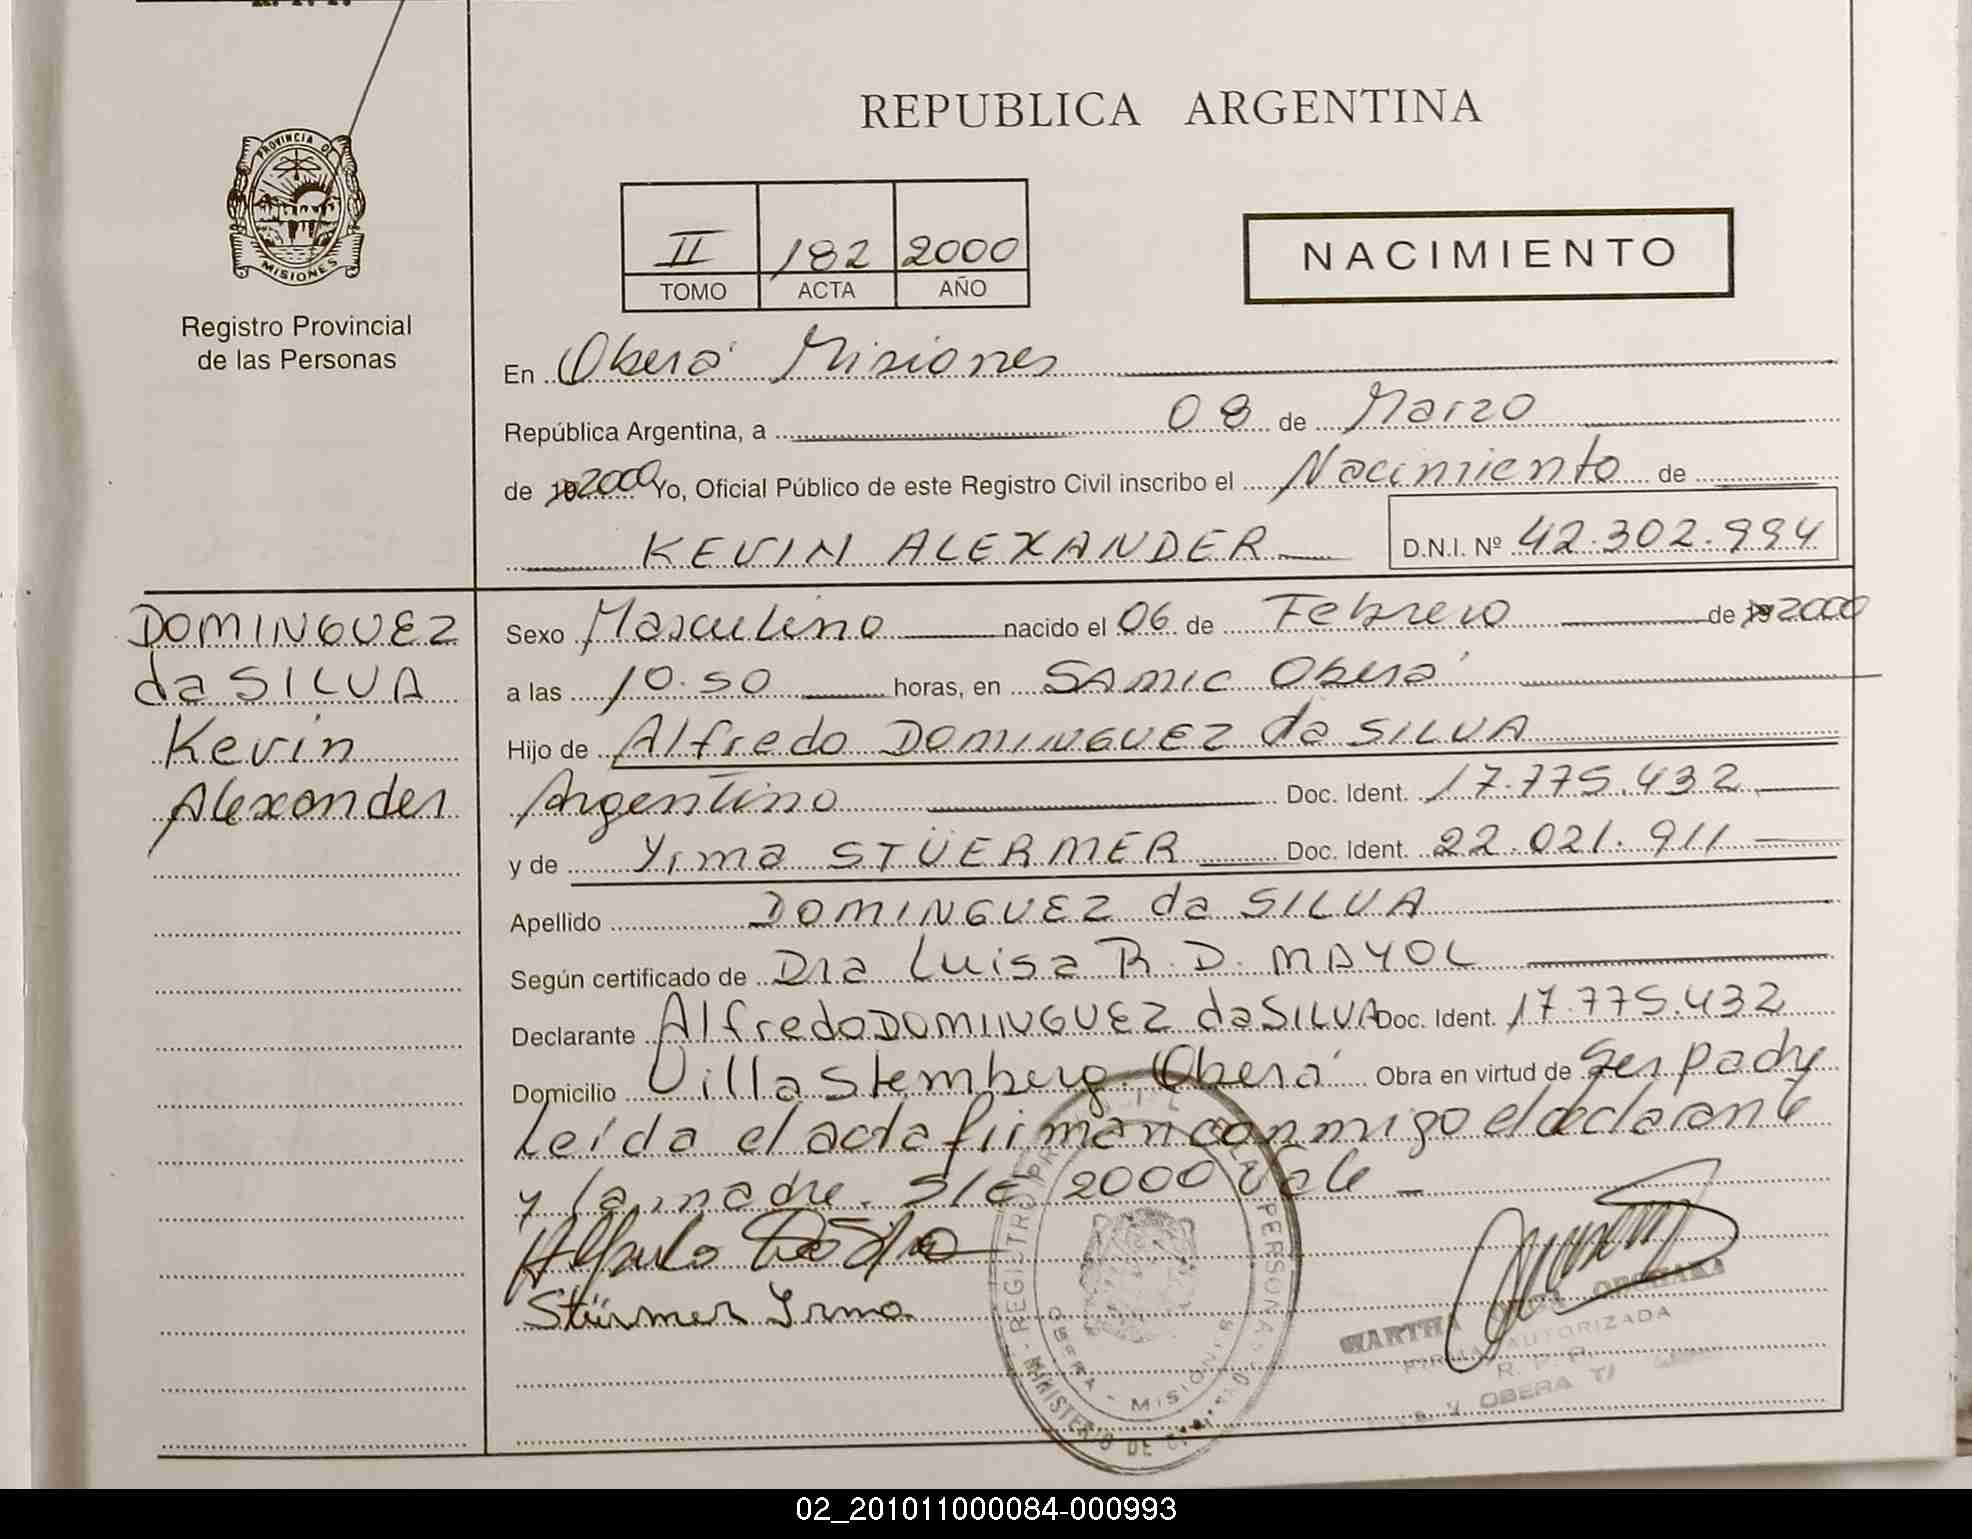 REPUBLICA ARGENTINA
PROVINCIA DE
MISIONES
Registro Provincial
de las Personas
II 182 2000
TOMO ACTA AÑO
NACIMIENTO
En Oberá Misiones
República Argentina, a 08 de Marzo
de 19 2000 Yo, Oficial Público de este Registro Civil inscribo el Nacimiento de
KEVIN ALEXANDER D.N.I. Nº 42.302.994
DOMINGUEZ
da SILVA
Kevin
Alexander
Sexo Masculino nacido el 06 de Febrero de 19 2000
a las 10.50 horas, en SAMIC Oberá
Hijo de Alfredo DOMINGUEZ da SILVA
Argentino Doc. Ident. 17.775.432
y de Yrma STÜERMER Doc. Ident. 22.021.911
Apellido DOMINGUEZ da SILVA
Según certificado de Dra Luisa R. D. MAYOL
Declarante Alfredo DOMINGUEZ da SILVA Doc. Ident. 17.775.432
Domicilio Villa Stemberg. Oberá Obra en virtud de Ser padre
Leída el acta firman conmigo el declarante
y la madre. S/E 2000 Vale
Stürmer Yrma
REGISTRO PERSONAS
OBERA - MISIONES
MINISTERIO DE
MARTHA
FIRMA AUTORIZADA
R. P. P.
OBERA
02_201011000084-000993